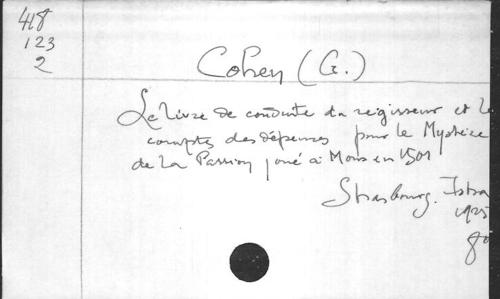 418
123
2
Cohen (G.)
Le livre de conduite du régisseur et le
compte des dépenses pour le Mystère
de la Passion joué à Mons en 1501
Strasbourg. Istra
1925
8°